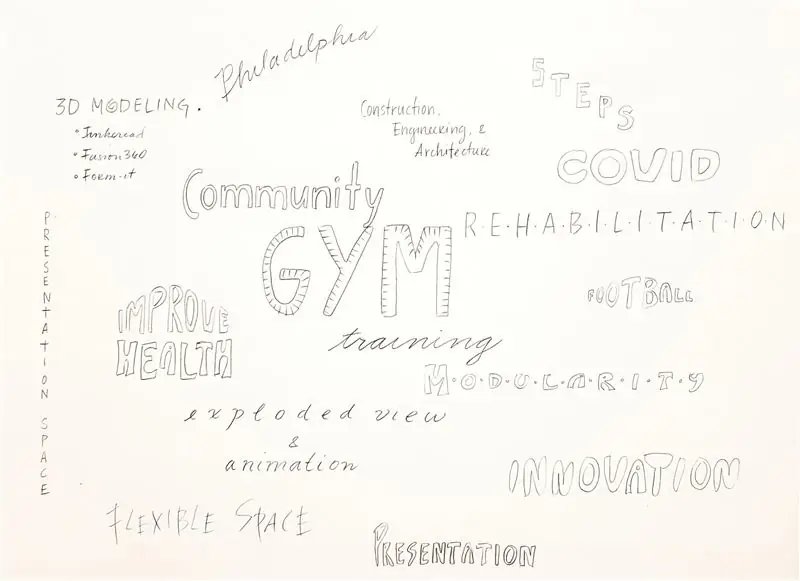 Philadelphia
3D MODELING.
• Tinkercad
• Fusion360
• Form-it
Construction,
Engineering, &
Architecture
STEPS
COVID
Community
GYM
R·E·H·A·B·I·L·I·T·A·T·I·O·N
PRESENTATION SPACE
IMPROVE
HEALTH
FOOTBALL
training
M·O·D·U·L·A·R·I·T·Y
exploded view
&
animation
INNOVATION
FLEXIBLE SPACE
PRESENTATION